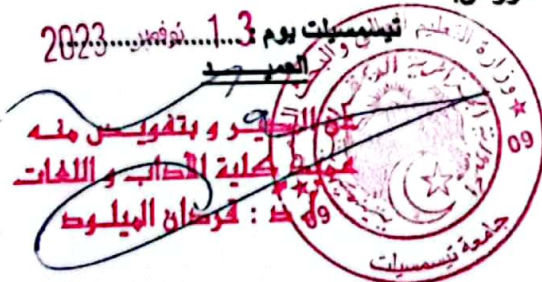 تيسمسيلت يوم: 13 نوفمبر 2023
العميد
عن المدير و بتفويض منه
عميد كلية الآداب و اللغات
أ. د : قردان الميلود
وزارة التعليم العالي و البحث
جامعة تيسمسيلت
09
09